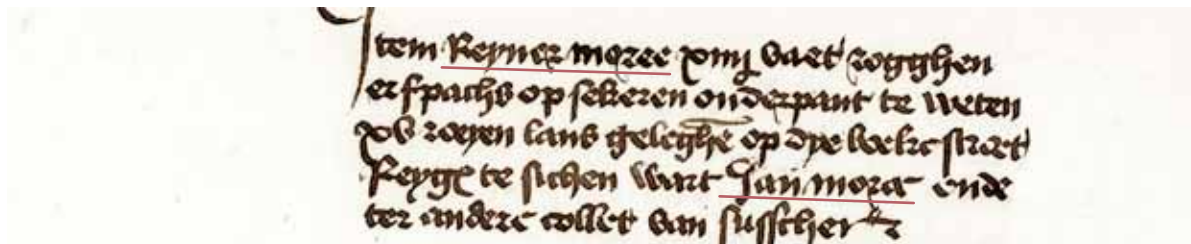 Item Reyner moree xiiij vaet rogghen
erfpachs op sekeren onderpant te weten
xv royen lans geleghē op dye boekt stroet
te sichen wart Jan moree ende
ter andere collet van susscher